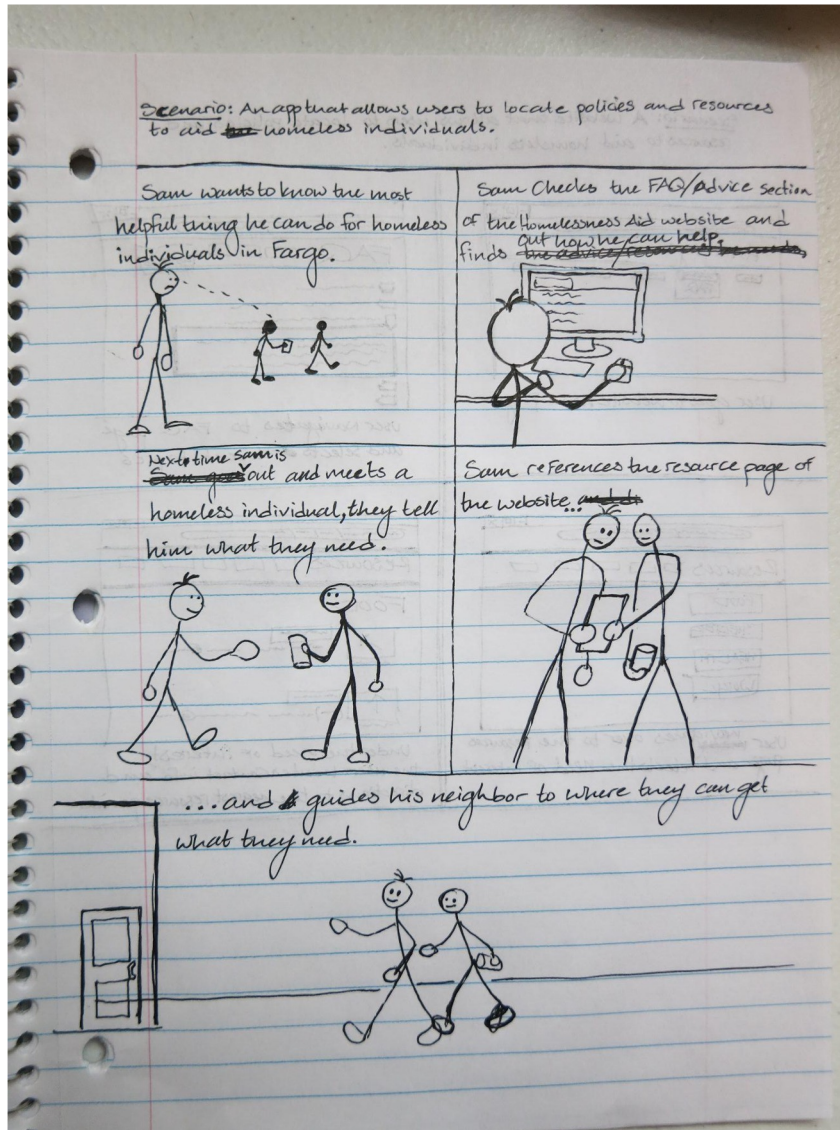 Scenario: An app that allows users to locate policies and resources
to aid homeless individuals.
Sam wants to know the most
helpful thing he can do for homeless
individuals in Fargo.
Sam Checks the FAQ/Advice section
of the Homelessness Aid website and
finds out how he can help.
Next time Sam is
out and meets a
homeless individual, they tell
him what they need.
Sam references the resource page of
the website...
...and guides his neighbor to where they can get
what they need.